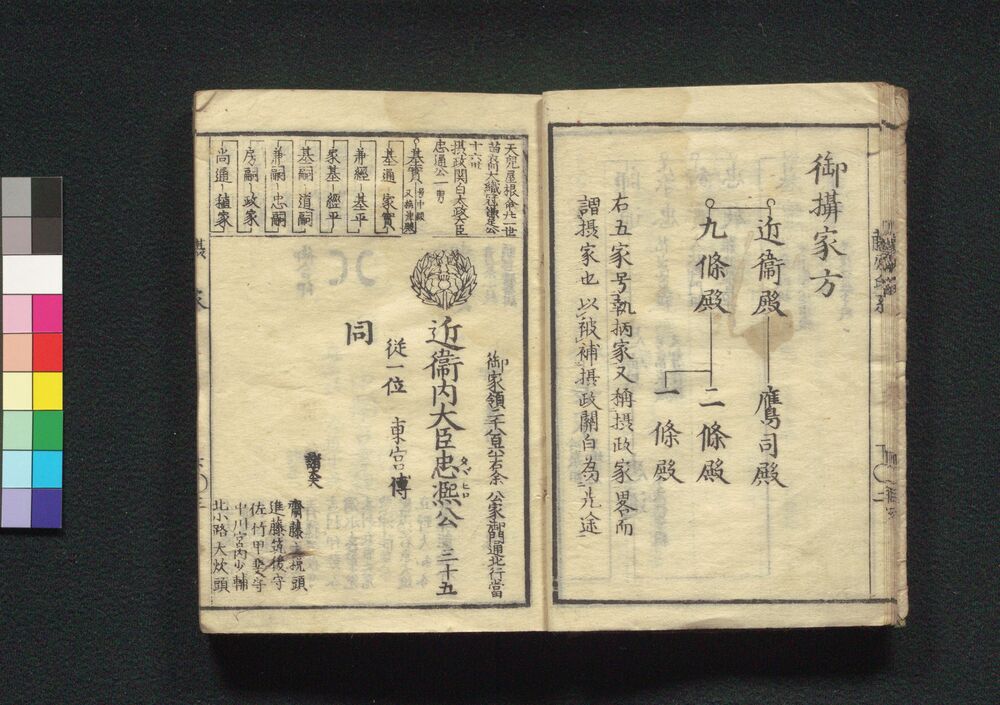 御攝家方
近衞殿
鷹司殿
九條殿
二條殿
一條殿
右五家号執柄家又稱摂政家畧而
謂摂家也以被補摂政關白為先途
御家領二千八百六十石余 公家御門通北行當
近衞内大臣忠凞公 三十五
タヾヒロ
従一位 東宮傳
同
諸大夫
齋藤
進藤筑後守
佐竹甲斐守
中川宮内少輔
北小路大炊頭
天児屋根命廿一世
苗裔大織冠鎌足公
十六世
摂政関白太政大臣
忠通公一男
基實
基通 家實
兼經 基平
家基 經平
基嗣 道嗣
兼嗣 忠嗣
房嗣 政家
尚通 稙家